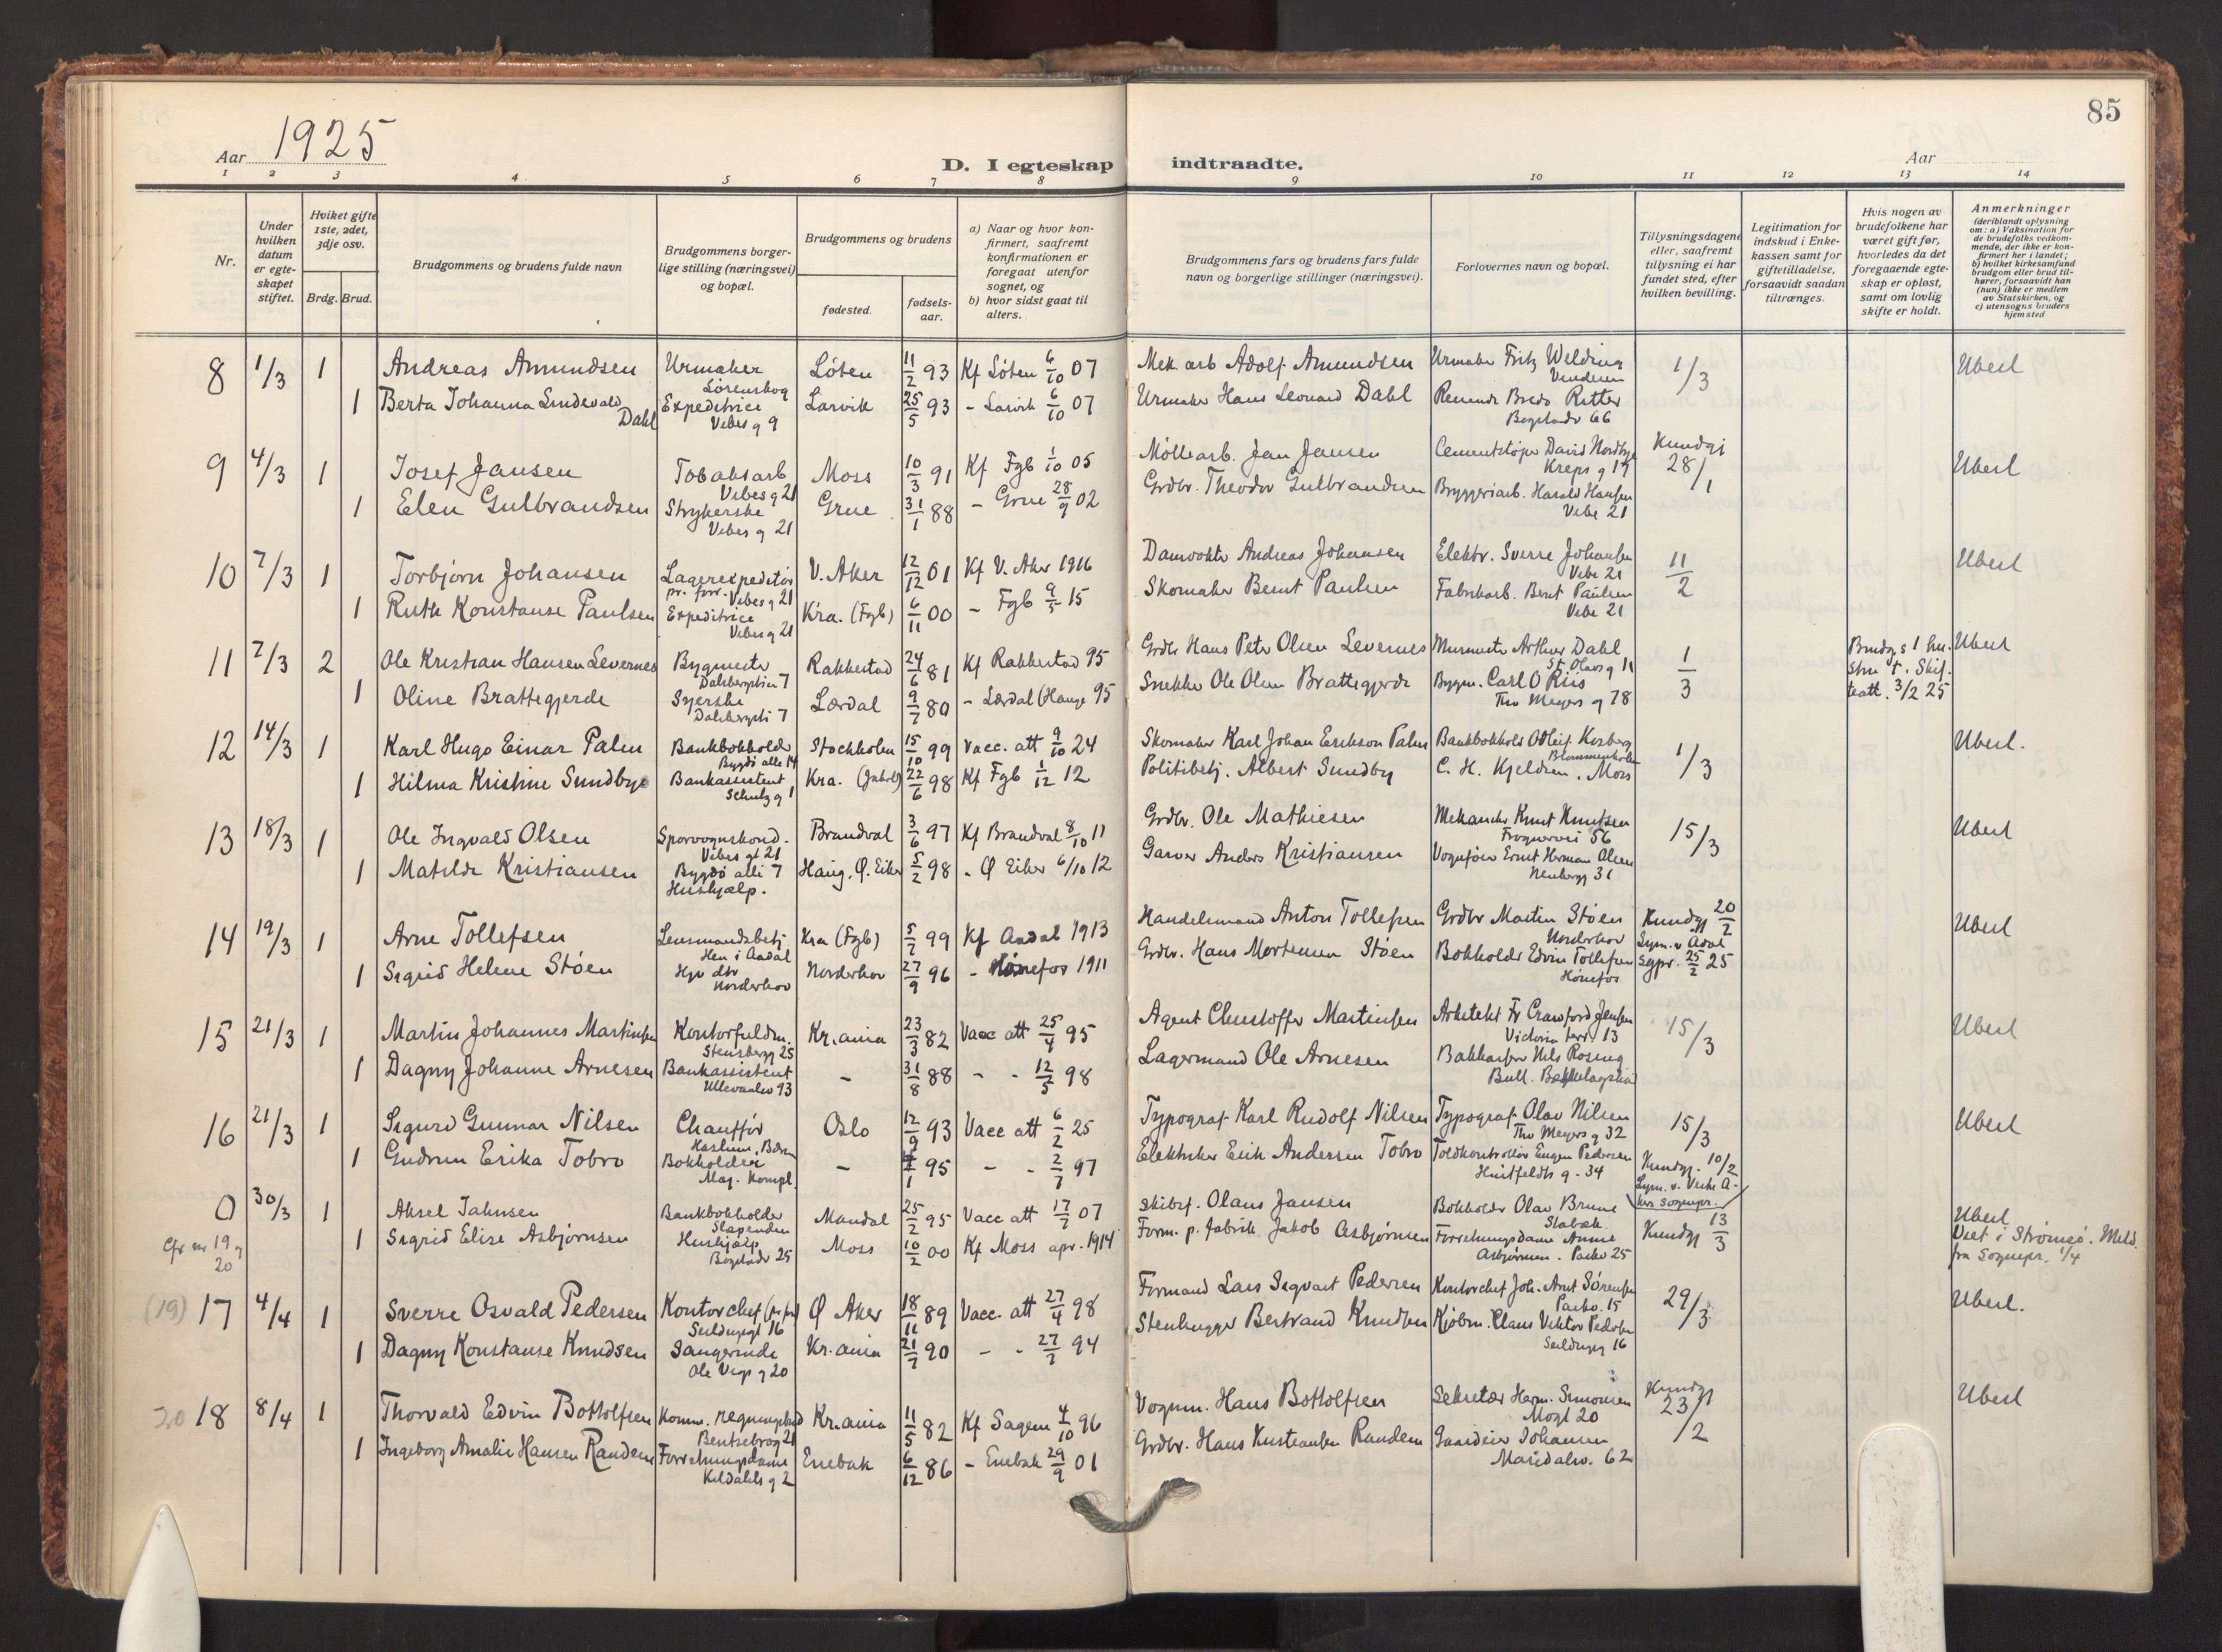 85
Aar 1925
D. I egteskap indtraadte.
Aar
1 2 3 4 5 6 7 8 9 10 11 12 13 14
Nr.
Under hvilken datum er egteskapet stiftet.
Hviket gifte 1ste, 2det, 3dje osv.
Brdg. Brud.
Brudgommens og brudens fulde navn
Brudgommens borgerlige stilling (næringsvei) og bopæl.
Brudgommens og brudens
fødested.
fødsels-aar.
a) Naar og hvor konfirmert, saafremt konfirmationen er foregaat utenfor sognet, og
b) hvor sidst gaat til alters.
Brudgommens fars og brudens fars fulde navn og borgerlige stillinger (næringsvei).
Forlovernes navn og bopæl.
Tillysningsdagene eller, saafremt tillysning ei har fundet sted, efter hvilken bevilling.
Legitimation for indskud i Enkekassen samt for giftetilladelse, forsaavidt saadan tiltrænges.
Hvis nogen av brudefolkene har været gift før, hvorledes da det foregaaende egteskap er opløst, samt om lovlig skifte er holdt.
Anmerkninger
(deriblandt oplysning om: a) Vaksination for de brudefolks vedkommende, der ikke er konfirmert her i landet;
b) hvilket kirkesamfund brudgom eller brud tilhører, forsaavidt han (hun) ikke er medlem av Statskirken, og
c) utensogns bruders hjemsted
8 1/3 1 Andreas Amundsen Urmaker Sørenskog Løten 11/2 93 Kf Løten 6/10 07 Mek. arb Adolf Amundsen Urmaker Fritz Welding Vinderen 1/3 Uberl
1 Berta Johanna Lindevald Dahl Expeditrice Vibes g 9 Larvik 25/5 93 - Larvik 6/10 07 Urmaker Hans Leonard Dahl Bredo Ritter Bogstadv 66
9 4/3 1 Josef Jansen Tobaksarb Vibes g 21 Moss 10/3 91 Kf Fgb 1/10 05 Møllearb. Jan Jansen Cementstøper David Nordbye Kreps g 17 Kundgj 28/1 Uberl
1 Elen Gulbrandsen Strykerske Vibes g 21 Grue 31/1 88 - Grue 28/9 02 Grdbr. Theodor Gulbrandsen Bryggeriarb. Harald Hansen Vibe 21
10 7/3 1 Torbjørn Johansen Lagerexpeditør pr. forr. Vibes g 21 V. Aker 12/12 01 Kf V. Aker 1916 Damvokter Andreas Johansen Elektr. Sverre Johansen Vibe 21 11/2 Uberl
1 Ruth Konstanse Paulsen Expeditrice Vibes g 21 Kra. (Fgb) 6/11 00 - Fgb 9/5 15 Skomaker Bernt Paulsen Fabrikarb. Bernt Paulsen Vibe 21
11 7/3 2 Ole Kristian Hansen Levernes Bygmester Dalsbergstien 7 Rakkestad 24/6 81 Kf Rakkestad 95 Grdbr Hans Peter Olsen Levernes Murmester Arthur Dahl St. Olavs g 11 1/3 Brudgs 1 hustru †. Skifteatt. 3/2 25 Uberl
1 Oline Brattegjerde Syerske Dalsbergsti 7 Lærdal 9/7 80 - Lærdal (Hauge 95 Snekker Ole Olsen Brattegjerde Bygm. Carl O Riis Thv Meyers g 78
12 14/3 1 Karl Hugo Einar Palm Bankbokholder Bygdø alle 14 Stockholm 15/10 99 Vacc. att 9/10 24 Skomaker Karl Johan Erikson Palm Bankbokhold Odleif Korberg Blommenholm 1/3 Uberl.
1 Hilma Kristine Sundbye Bankassistent Schultz g 1 Kra. (Jakob) 22/6 98 Kf Fgb 1/12 12 Politibetj. Albert Sundby C. H. Kjeldsen, Moss
13 18/3 1 Ole Ingvald Olsen Sporvognskond. Vibes gt 21 Brandval 3/6 97 Kf Brandval 8/10 11 Grdbr. Ole Mathiesen Mekaniker Knut Knutsen Frognervei 56 15/3 Uberl
1 Matilde Kristiansen Bygdø alle 7 Hushjælp. Haug, Ø. Eiker 5/2 98 - Ø Eiker 6/10 12 Garver Anders Kristiansen Vognfører Ernst Herman Olsen Neubergg 31
14 19/3 1 Arne Tollefsen Lensmandsbetj Hen i Aadal Kra (Fgb) 5/7 99 Kf Aadal 1913 Handelsmand Anton Tollefsen Grdbr Martin Støen Norderhov Kundgj 20/2 Lysn. v Adal Sgpr. 25/2 25 Uberl
1 Sigrid Helene Støen Norderhov Norderhov 27/9 96 - Hønefos 1911 Grdbr. Hans Mortensen Støen Bokholder Edvin Tollefsen Hønefos
15 21/3 1 Martin Johannes Martinsen Kontorfuldm. Stensbergg 25 Kr.ania 23/3 82 Vacc att 25/4 95 Agent Christoffer Martinsen Arkitekt Fr Crawford Jensen Victoria terr. 13 15/3 Uberl
1 Dagny Johanne Arnesen Bankassistent Ullevaalsv 93 - 31/8 88 - - 12/5 98 Lagermand Ole Arnesen Nils Rosing Bull. Bækkelagshø
16 21/3 1 Sigurd Gunnar Nilsen Chauffør Haslum, Bærum Oslo 12/9 93 Vacc att 6/2 25 Typograf Karl Rudolf Nilsen Typograf Olav Nilsen Thv Meyers g 32 15/3 Uberl
1 Gudrun Erika Tobro Bokholder Maj. kompl. - 1 95 - - 2/7 97 Elektriker Erik Andersen Tobro Toldkontrollør Eugen Pedersen Huitfeldts g. 34 Kundgj. 10/2 Lysn. v. Vestre A-kers sognepr.
0 30/3 1 Aksel Jahnsen Bankbokholder Slependen Mandal 25/2 95 Vacc att 17/7 07 Skibsf. Olaus Jansen Bokholder Olav Brune Stabæk. Kundgj 13/3 Uberl Viet i Strømsø. Meld. fra Sognepr. 1/4
cfr nr 19 g 20 1 Sigrid Elise Asbjørnsen Hushjælp Bogstadv 25 Moss 10/2 00 Kf Moss apr. 1914 Form. p. fabrik Jakob Asbjørnsen Forretningsdame Anne Asbjørnsen. Parkv 25
(19) 17 4/4 1 Sverre Osvald Pedersen Kontorchef Seildugsgt 16 Ø Aker 18/11 89 Vacc. att 27/4 98 Formand Lars Sigvart Pedersen Kontorchef Joh. Arnt Sørensen Parkv. 15 29/3 Uberl.
1 Dagny Konstanse Knudsen Sangerinde Ole Vigs g 20 Kr.ania 21/7 90 - - 27/7 94 Stenhugger Bertrand Knudsen Kjøbm. Claus Viktor Pedersen Seildugsg 16
20 18 8/4 1 Thorvald Edvin Bottolfsen Komm. regningsbud Bentsebrog 21 Kr.ania 11/5 82 Kf Sagene 4/10 96 Vognm. Hans Bottolfsen Sekretær Herm. Simonsen Mogt 20 Kundgj 23/2 Uberl
1 Ingeborg Amalie Hansen Randem Forretningsdame Kildahls g 2 Enebak 6/12 86 - Enebak 29/9 01 Grdbr. Hans Kristiansen Randem Gaardeier Johansen Maridalsv. 62